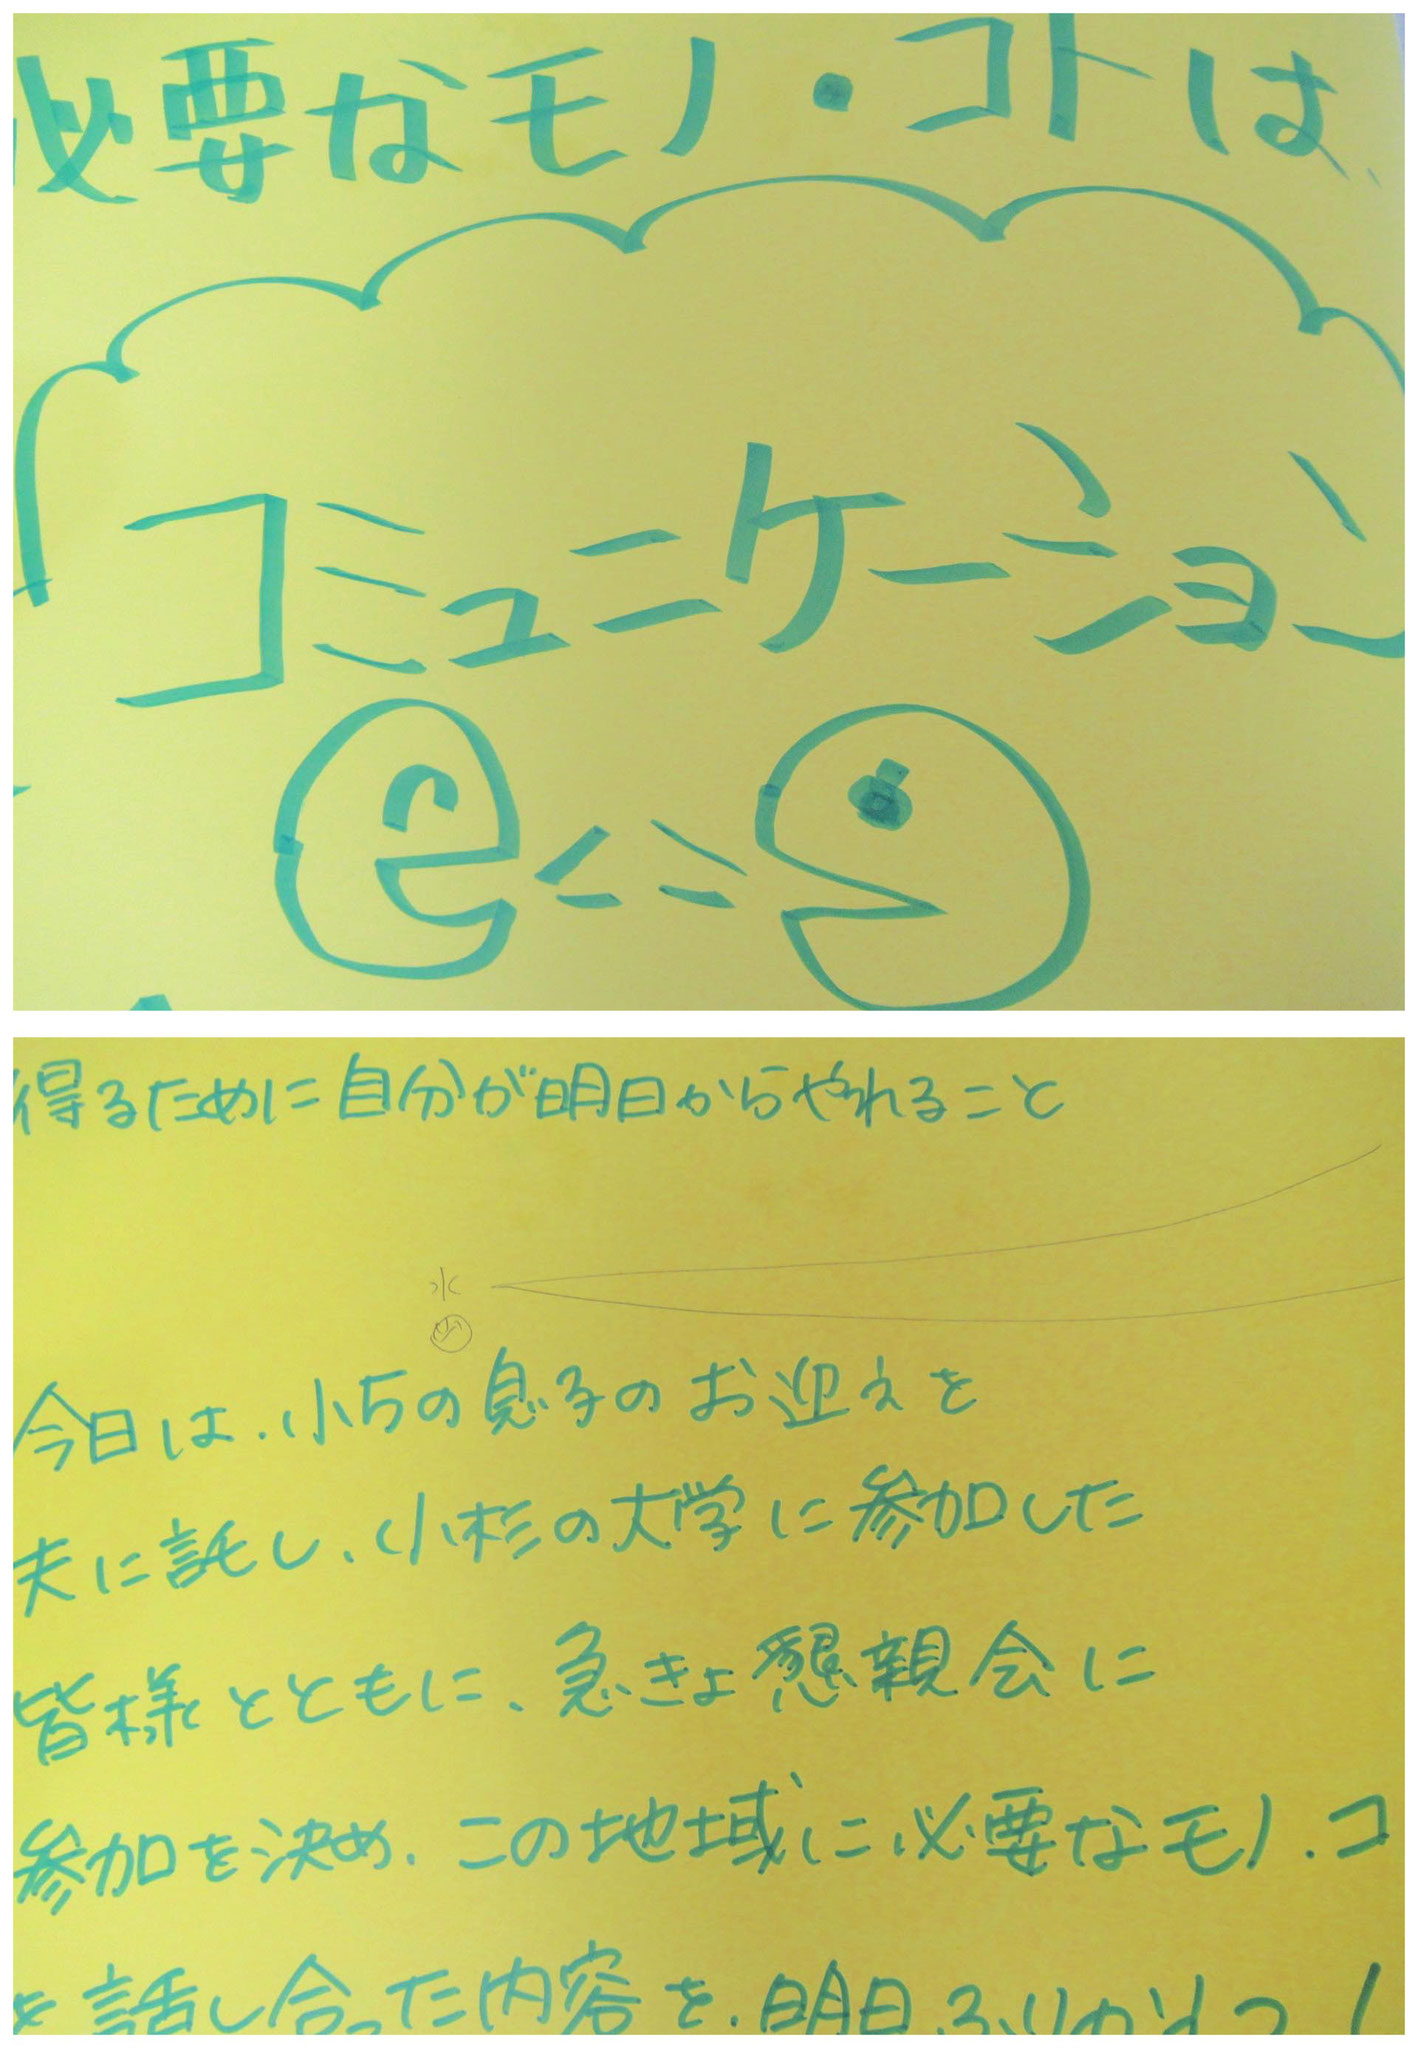 必要なモノ・コトは、
コミュニケーション
得るために自分が明日からやれること
水
今日は、小5の息子のお迎えを
夫に託し、小杉の大学に参加した
皆様とともに、急きょ懇親会に
参加を決め、この地域に必要なモノ・コ
を話し合った内容を、明日ふりかえっ